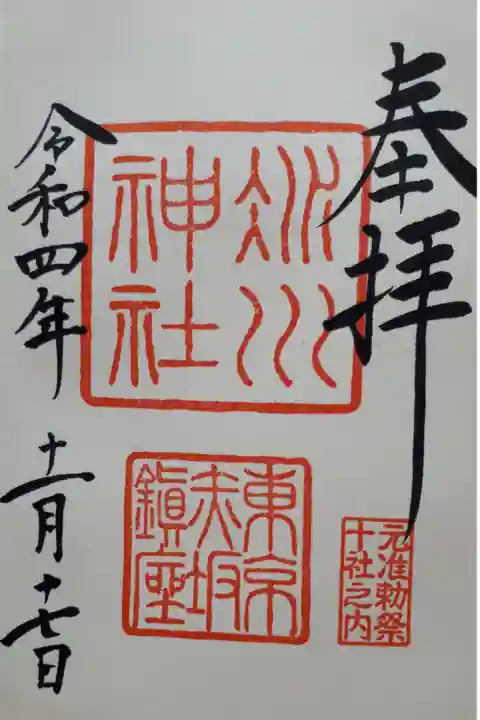 奉拝
氷川
神社
元准勅祭
十社之内
東京
赤坂
鎮座
令和四年
十一月十七日